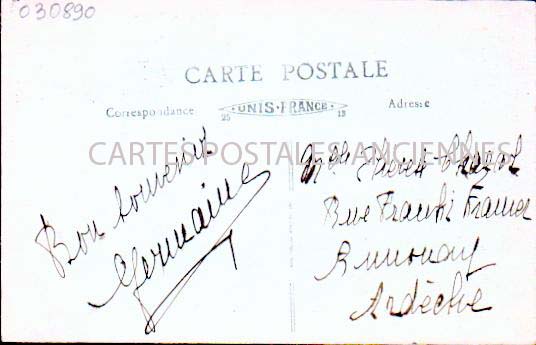 030890
CARTE POSTALE
Correspondance
UNIS-FRANCE
25
13
Adresse
CARTES POSTALES ANCIENNES
Bon souvenir
Germaine
Mlle
Rue
Annonay
Ardèche